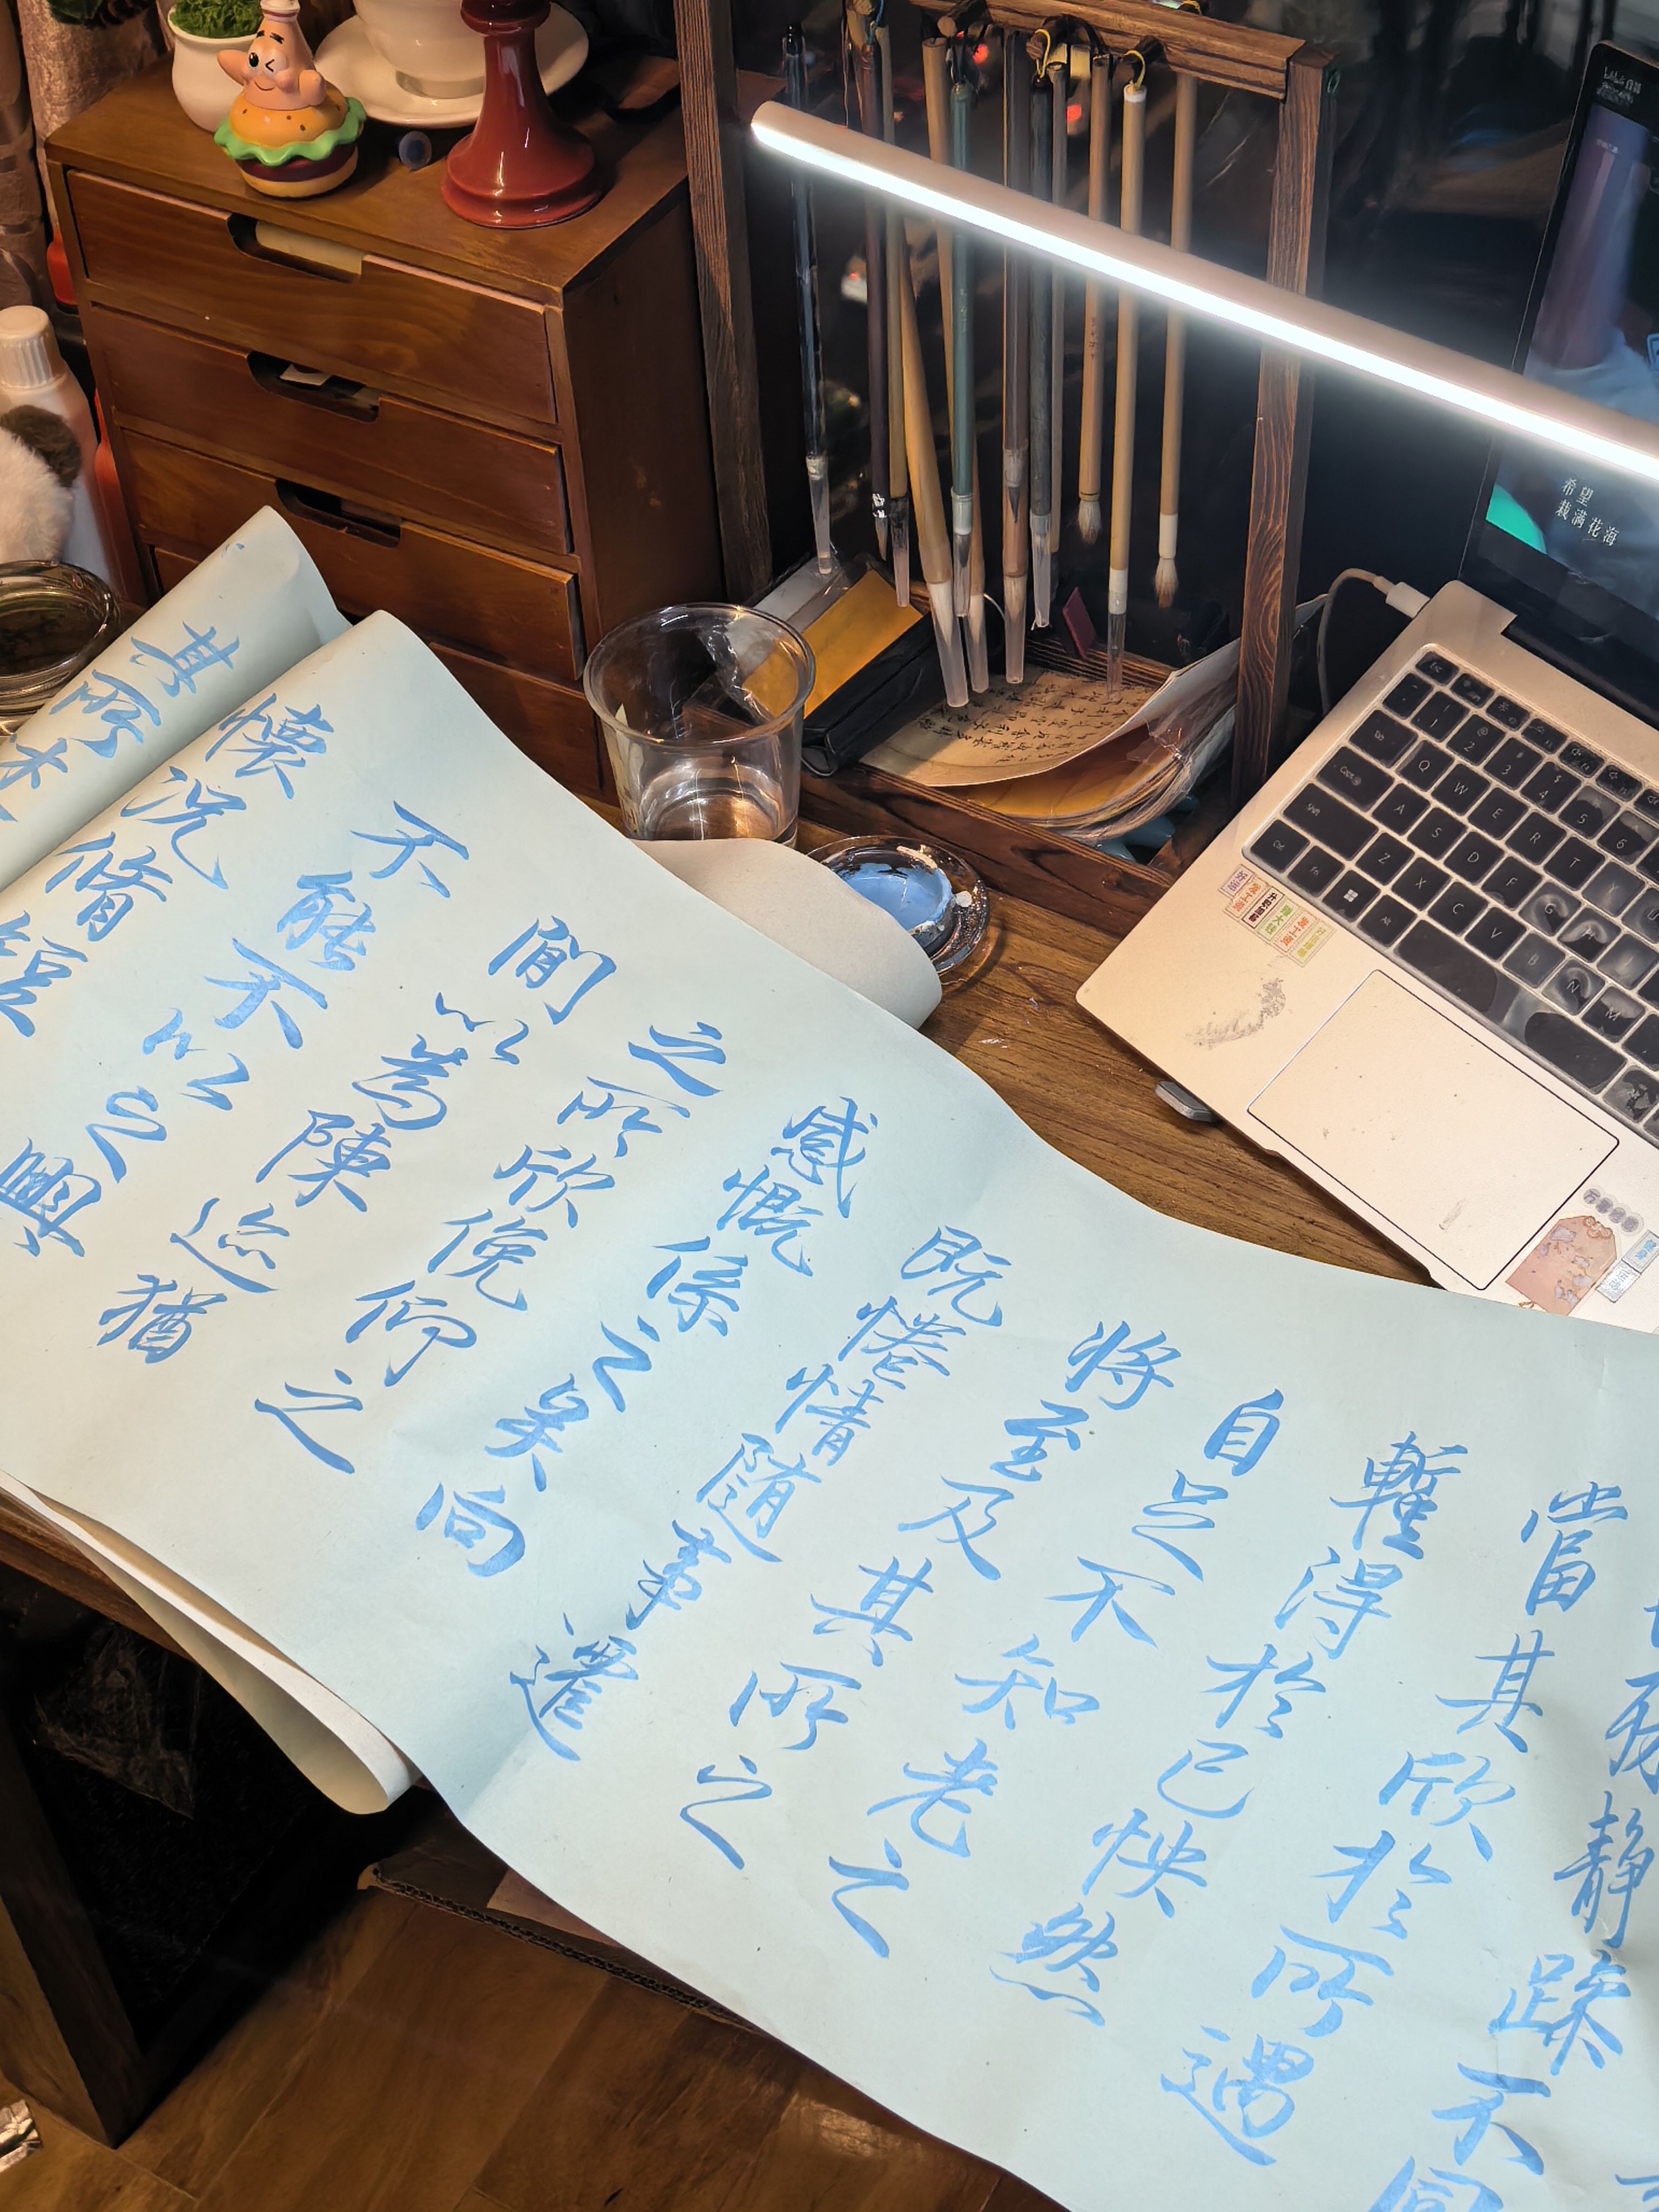 殊静躁不同
當其欣於所遇
暫得於己怏然
自足不知老之
将至及其所之
既惓情随事遷
感慨係之矣向
之所欣俛仰之
閒以為陳迹猶
不能不以之興
懷況脩短
其所
希望
栽满花海